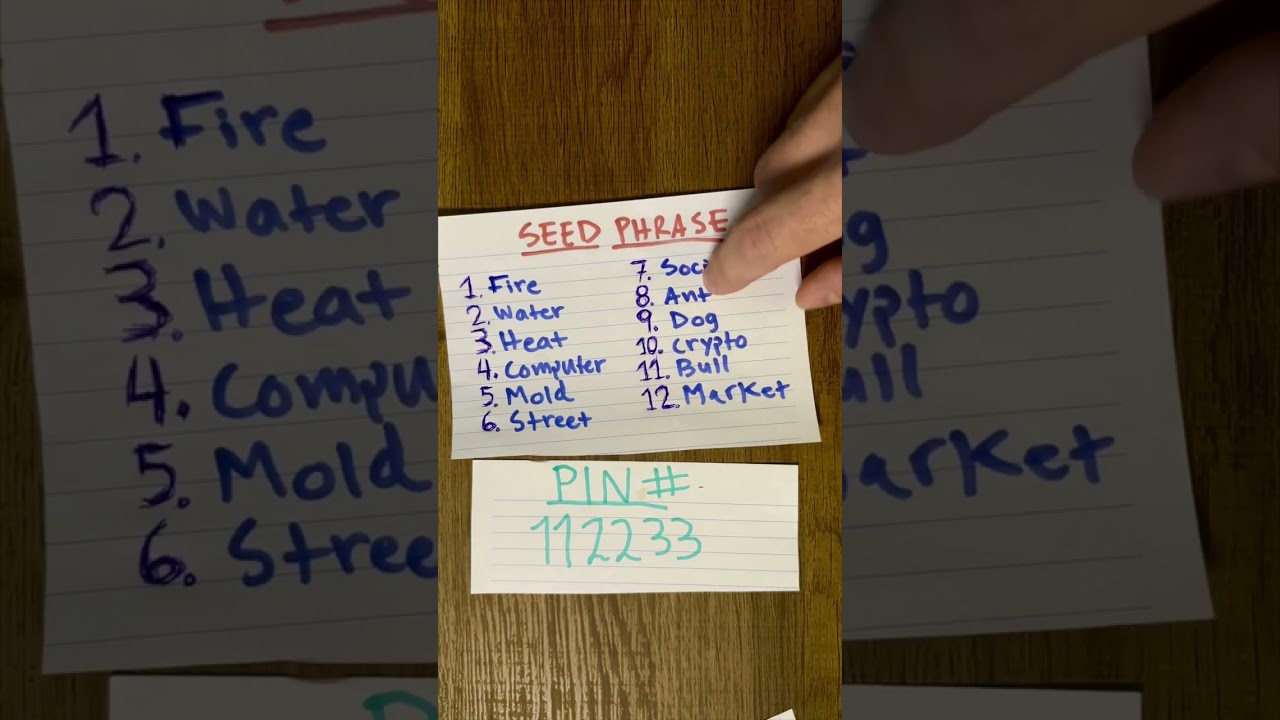 SEED PHRASE
1. Fire
2. Water
3. Heat
4. Computer
5. Mold
6. Street
7.
8. Ant
9. Dog
10. Crypto
11. Bull
12. Market
PIN #
112233